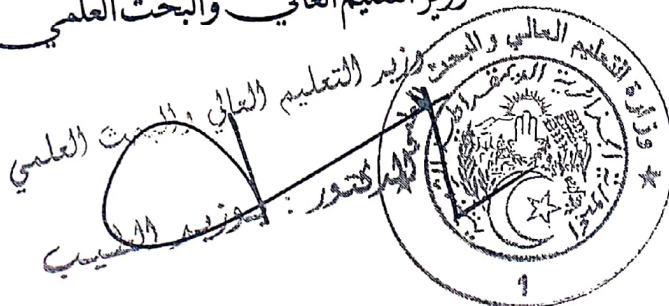 وزير التعليم العالي والبحث العلمي
وزير التعليم العالي والبحث العلمي
الدكتور : بوزيد الطيب
وزارة التعليم العالي و البحث العلمي
الجمهورية الجزائرية الديمقراطية الشعبية
1